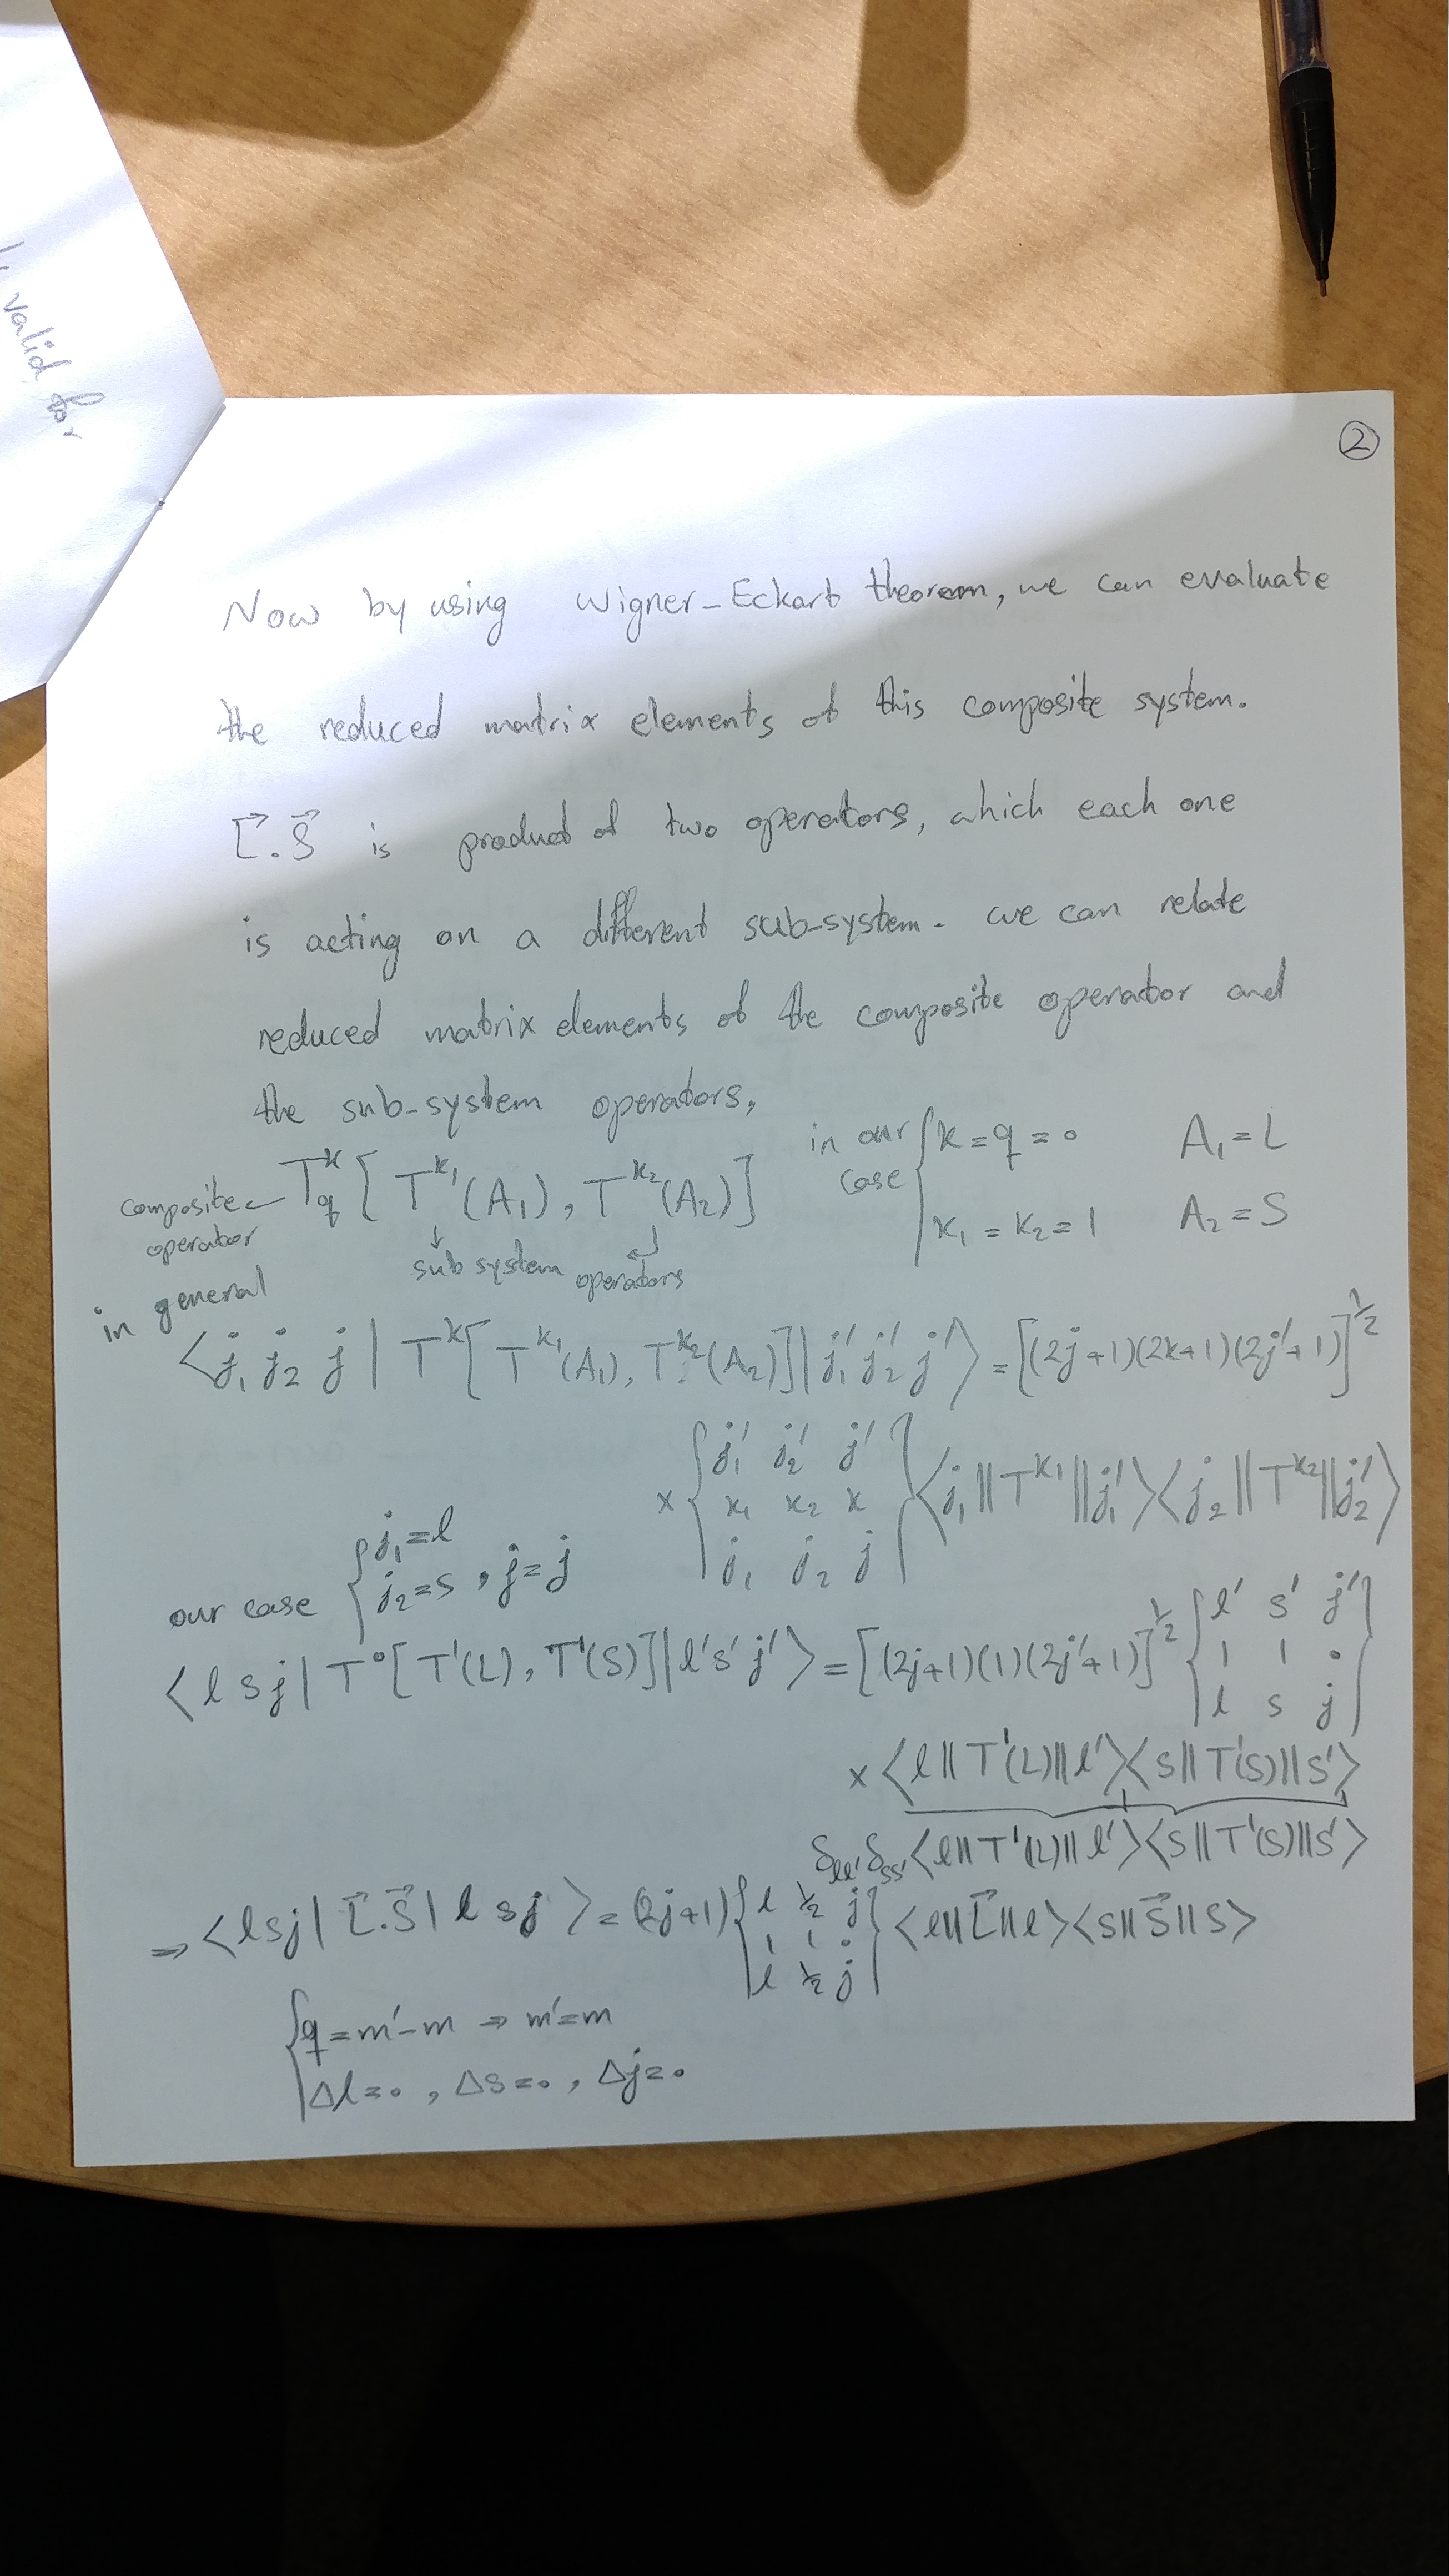 ②
Now by using Wigner-Eckart theorem, we can evaluate
the reduced matrix elements of this composite system.
L⃗.S⃗ is product of two operators, which each one
is acting on a different sub-system. we can relate
reduced matrix elements of the composite operator and
the sub-system operators,
composite operator ← T^k_q [T^k₁(A₁), T^k₂(A₂)] in our case { k=q=0 A₁=L
k₁=k₂=1 A₂=S
sub system operators
in general
<j₁ j₂ j | T^k[T^k₁(A₁), T^k₂(A₂)] | j₁' j₂' j'> = [(2j+1)(2k+1)(2j'+1)]^½
x { j₁' j₂' j' / k₁ k₂ k / j₁ j₂ j } <j₁||T^k₁||j₁'><j₂||T^k₂||j₂'>
our case { j₁=l
j₂=s , j=j
<l s j | T⁰[T¹(L), T¹(S)] | l' s' j'> = [(2j+1)(1)(2j'+1)]^½ { l' s' j' / 1 1 0 / l s j }
x <l||T¹(L)||l'><s||T¹(S)||s'>
δll' δss' <l||T¹(L)||l'><s||T¹(S)||s'>
⇒ <lsj| L⃗.S⃗ | l s j> = (2j+1) { l ½ j / 1 1 0 / l ½ j } <l||L⃗||l><s||S⃗||s>
{ q=m'-m ⇒ m'=m
Δl=0, Δs=0, Δj=0
valid for